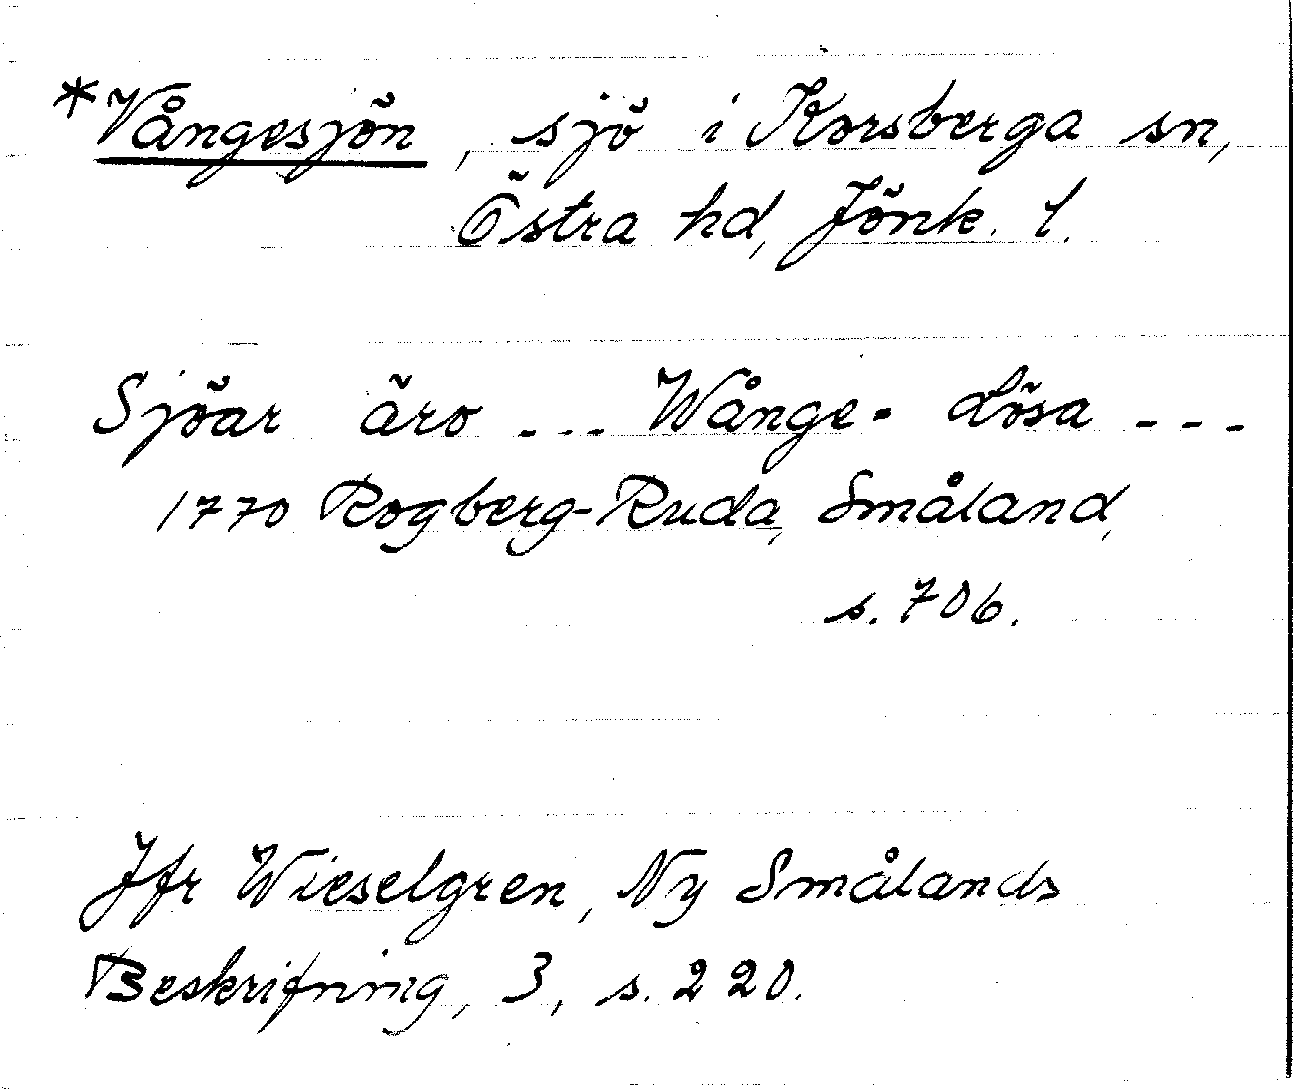 *Vångesjön, sjö i Korsberga sn,
Östra hd, Jönk. l.
Sjöar äro --- Wånge- Lösa ---
1770 Rogberg-Ruda, Småland,
s. 706.
Jfr Wieselgren, Ny Smålands
Beskrifning, 3, s. 220.